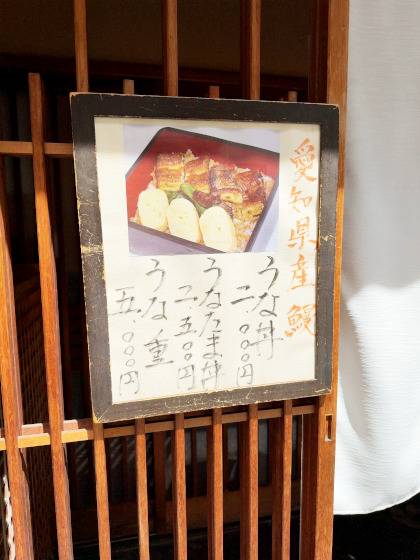 愛知県産 鰻
うな丼
二、〇〇〇円
うなたま丼
二、五〇〇円
うな重
五、〇〇〇円